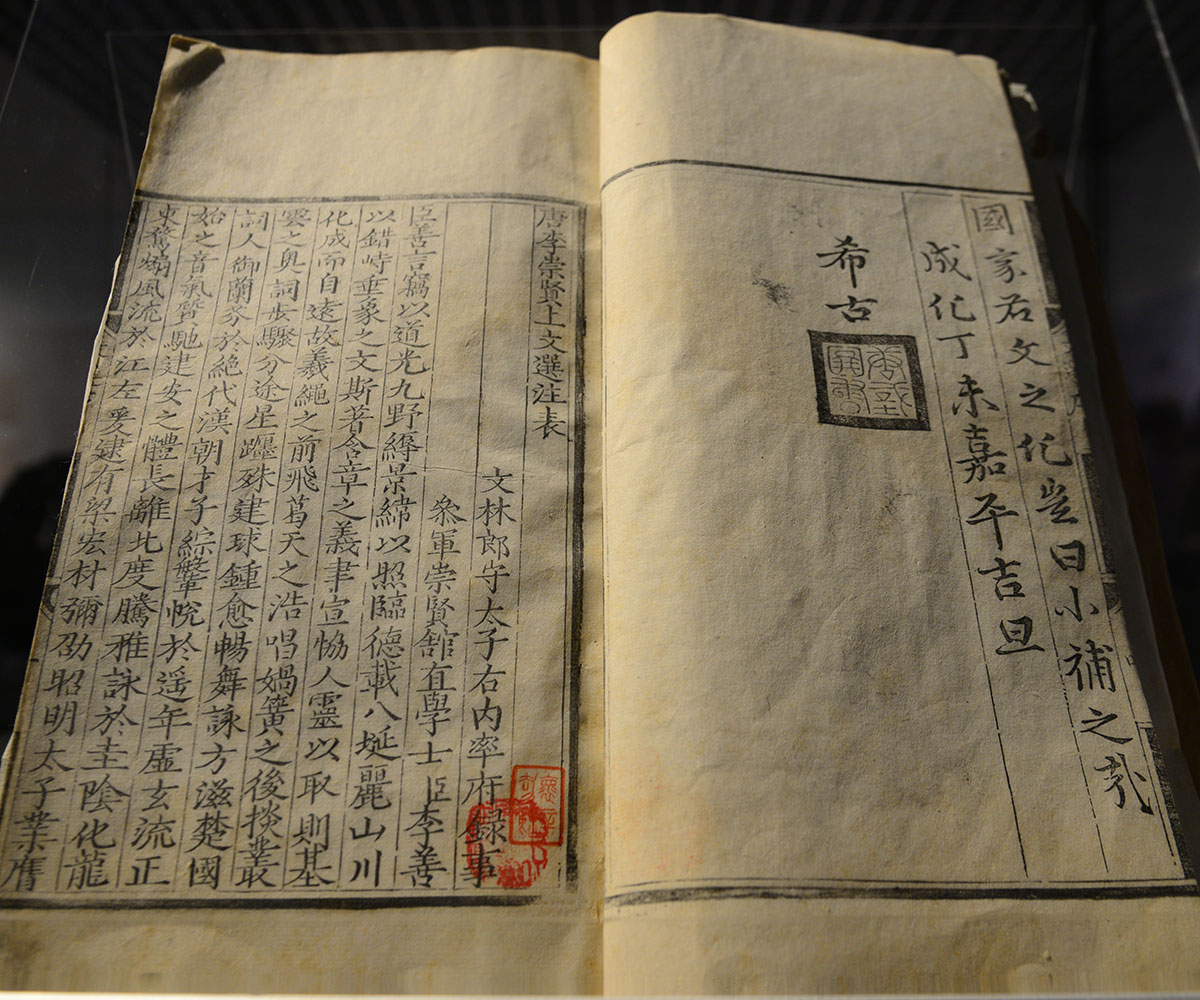 國家右文之化豈曰小補之哉
成化丁未嘉平吉旦
希古
唐李崇賢上文選注表
文林郎守太子右內率府錄事
叅軍崇賢館直學士臣李善
臣善言竊以道光九野縟景緯以照臨德載八埏麗山川
以錯峙垂象之文斯著含章之義聿宣恊人靈以取則基
化成而自遠故羲繩之前飛葛天之浩唱媧簧之後掞叢
雲之奧詞步驟分途星躔殊建球鍾愈暢舞詠方滋楚國
詞人御蘭芬於絕代漢朝才子綜鞶帨於遥年虛玄流正
始之音氣質馳建安之體長離北度騰雅詠於圭陰化龍
東騖煽風流於江左爰逮有梁宏材彌劭昭明太子業膺